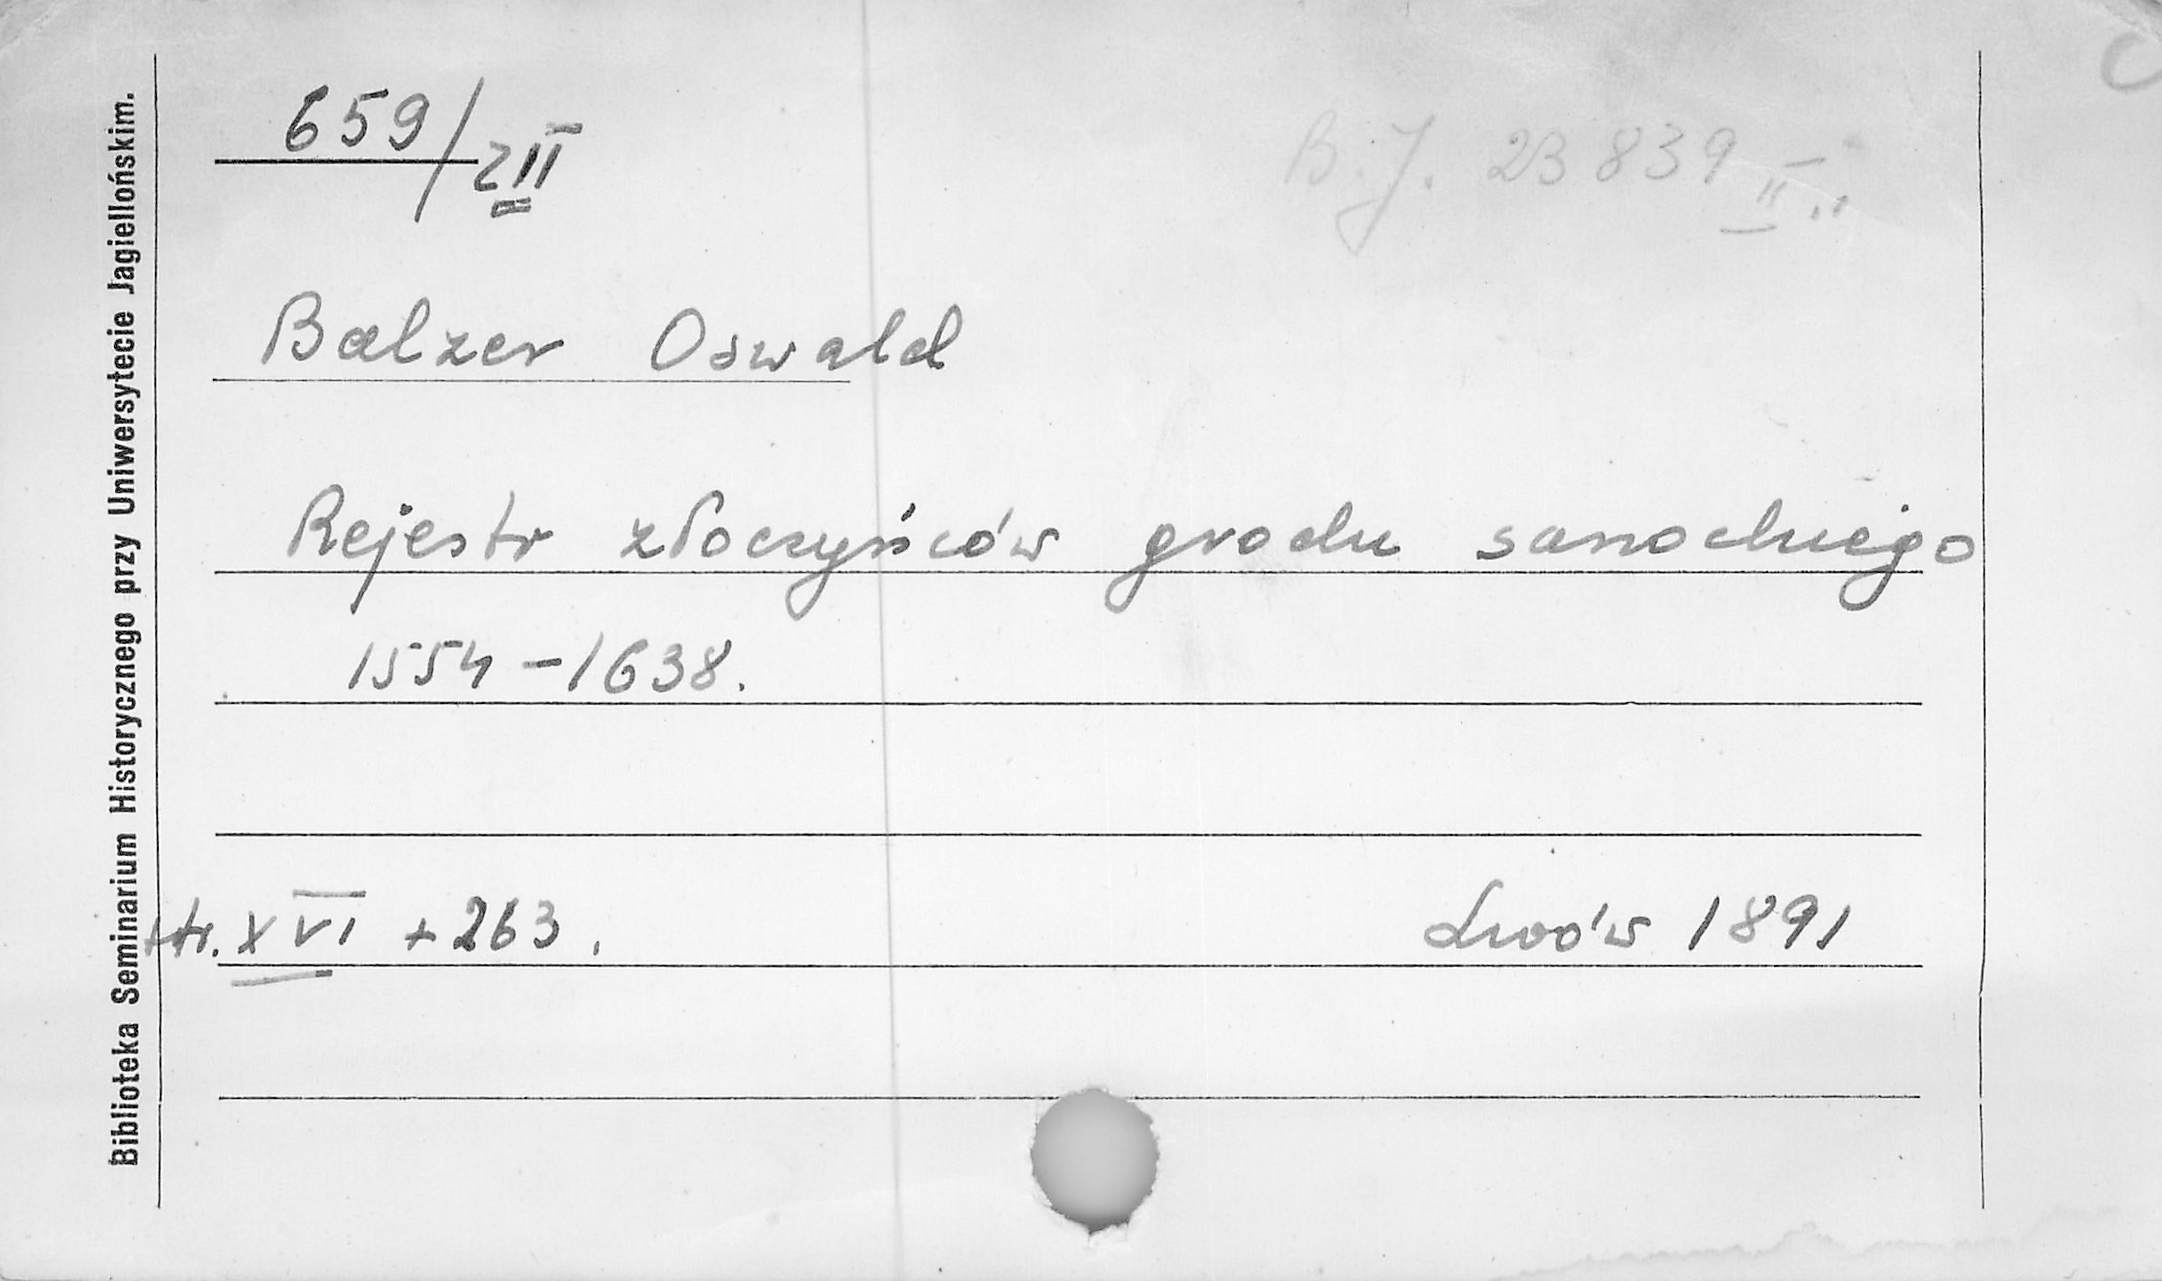 Biblioteka Seminarium Historycznego przy Uniwersytecie Jagiellońskim.
659/ZII
B.J. 23839 II
Balzer Oswald
Rejestr złoczyńców grodu sanockiego
1554-1638.
str. XVI + 263.
Lwów 1891